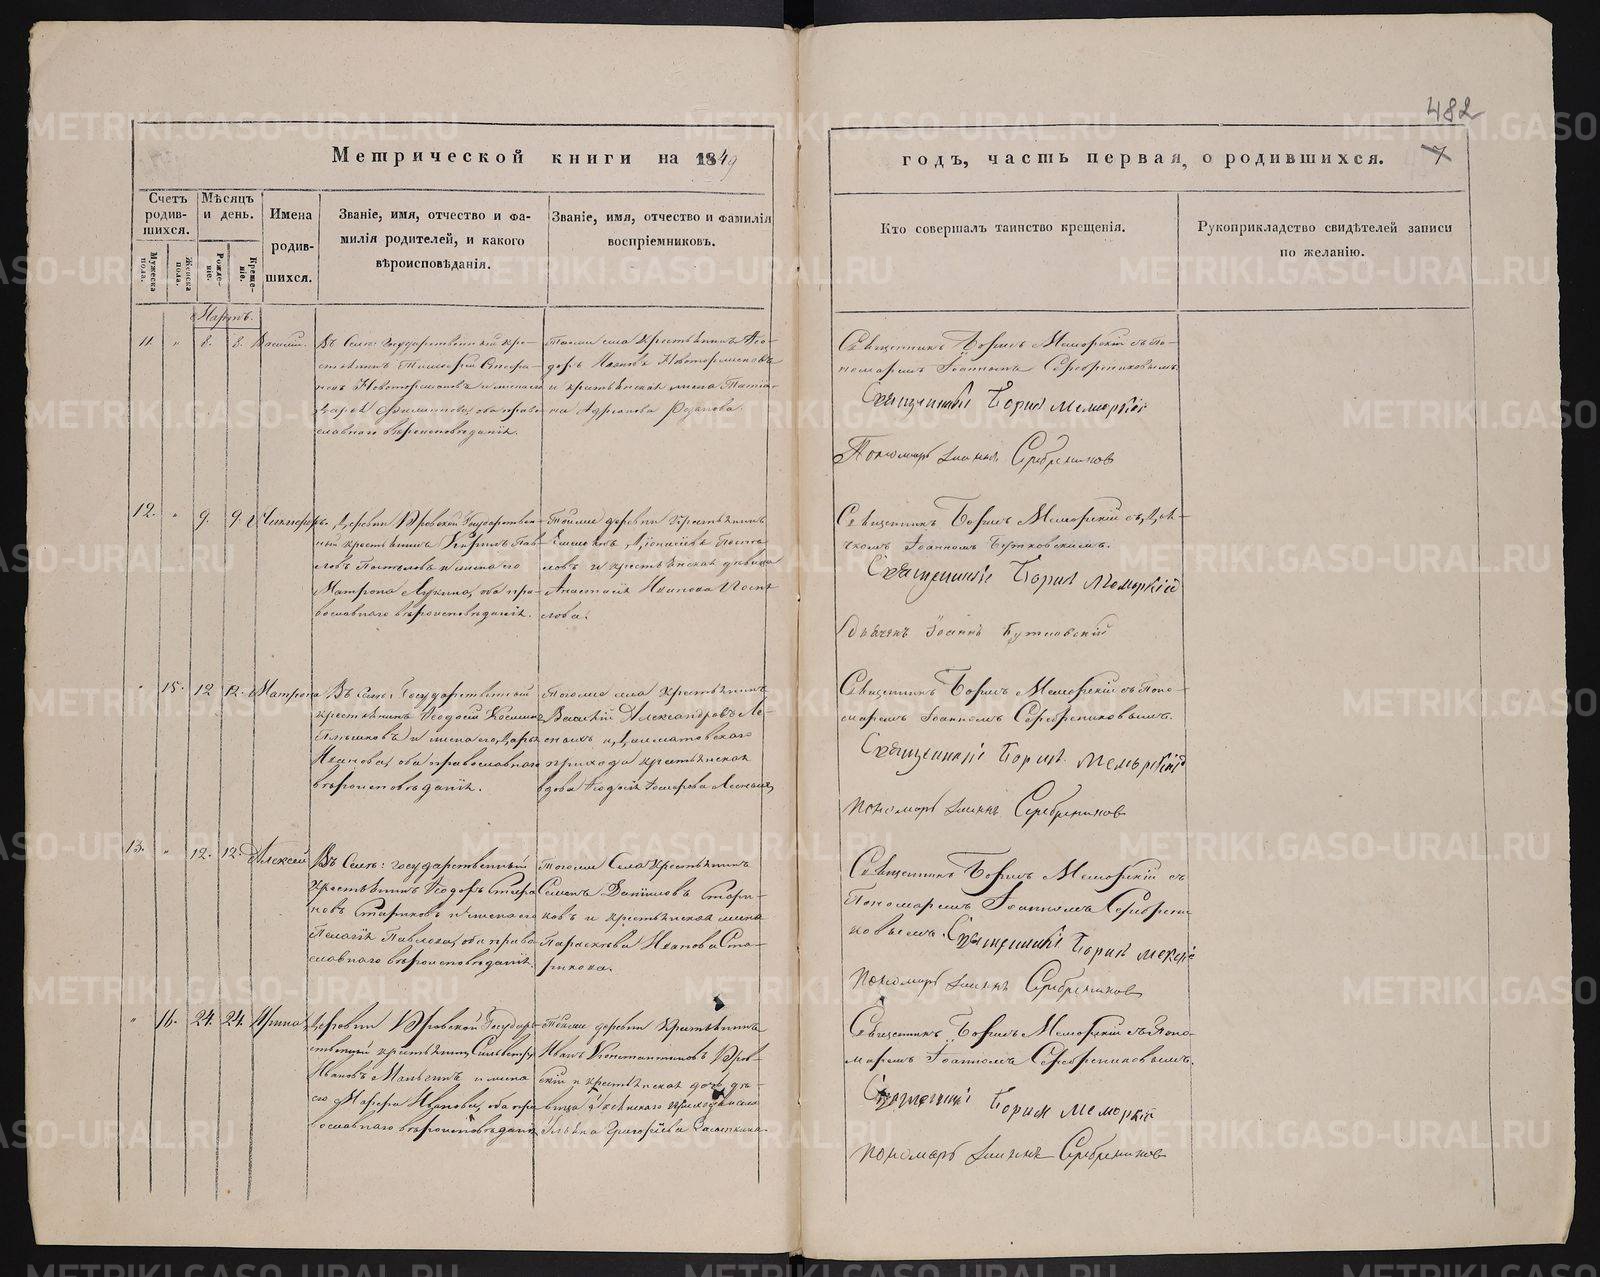 482
Метрической книги на 1849
годъ, часть первая, о родившихся.
7
Счетъ родив-шихся.
Мѣсяцъ и день.
Имена родив-шихся.
Званіе, имя, отчество и фа-
милія родителей, и какого
вѣроисповѣданія.
Званіе, имя, отчество и фамилія
воспріемниковъ.
Кто совершалъ таинство крещенія.
Рукоприкладство свидѣтелей записи
по желанію.
Мужеска пола.
Женска пола.
Рожде-ніе.
Креще-ніе.
Мартъ.
11. " 8. 8. Василій.
Въ Селѣ: Государственный кре-
стьянинъ Тимофей Стефа-
новъ и жена его
Дарья Филиппова, оба право-
славнаго вѣроисповѣданія.
Тогоже села крестьянинъ Ѳео-
доръ Ивановъ
и крестьянская жена Татiа-
на Адріанова
Священникъ Борисъ Меморскій съ По-
номаремъ Іоанномъ Серебрениковымъ.
Священникъ Борисъ Меморскій
Пономарь Іоаннъ Серебрениковъ
12. " 9. 9. Никифоръ.
Деревни Государствен-
ный крестьянинъ Кирилъ Пав-
ловъ и жена его
Матрона Лукина, оба пра-
вославнаго вѣроисповѣданія.
Тойже деревни крестьянинъ
и крестьянская дѣвица
Анастасія Иванова Посѣ-
лова.
Священникъ Борисъ Меморскій съ Дья-
чкомъ Іоанномъ Бутковскимъ.
Священникъ Борисъ Меморскій
Дьячекъ Іоаннъ Бутковскій
" 15. 12 12. Матрона
Въ Селѣ: Государственный
крестьянинъ Ѳеодосій Косминъ
и жена его Дарья
Иванова, оба православнаго
вѣроисповѣданія.
Тогоже села крестьянинъ
Василій Александровъ Ле-
и Далматовскаго
прихода крестьянская
вдова
Священникъ Борисъ Меморскій съ Поно-
маремъ Іоанномъ Серебрениковымъ.
Священникъ Борисъ Меморскій
Пономарь Іоаннъ Серебрениковъ
13. " 12. 12. Алексей
Въ Селѣ: государственный
крестьянинъ Ѳеодоръ Стефа-
новъ Стариковъ и жена его
Пелагія Павлова, оба право-
славнаго вѣроисповѣданія.
Тогоже Села крестьянинъ
Семенъ Даниловъ Стари-
ковъ и крестьянская жена
Параскева Иванова Ста-
рикова.
Священникъ Борисъ Меморскій съ
Пономаремъ Іоанномъ Серебрени-
ковымъ. Священникъ Борисъ Меморскій
Пономарь Іоаннъ Серебрениковъ
" 16. 24. 24. Ирина
Деревни Государ-
ственный крестьянинъ Сильвестръ
Ивановъ и жена
его Марфа Иванова, оба пра-
вославнаго вѣроисповѣданія
Тойже деревни крестьянинъ
Иванъ Константиновъ
и крестьянская дочь дѣ-
вица прихода
Григорьева
Священникъ Борисъ Меморскій съ Поно-
маремъ Іоанномъ Серебрениковымъ.
Священникъ Борисъ Меморскій
Пономарь Іоаннъ Серебрениковъ
METRIKI.GASO-URAL.RU